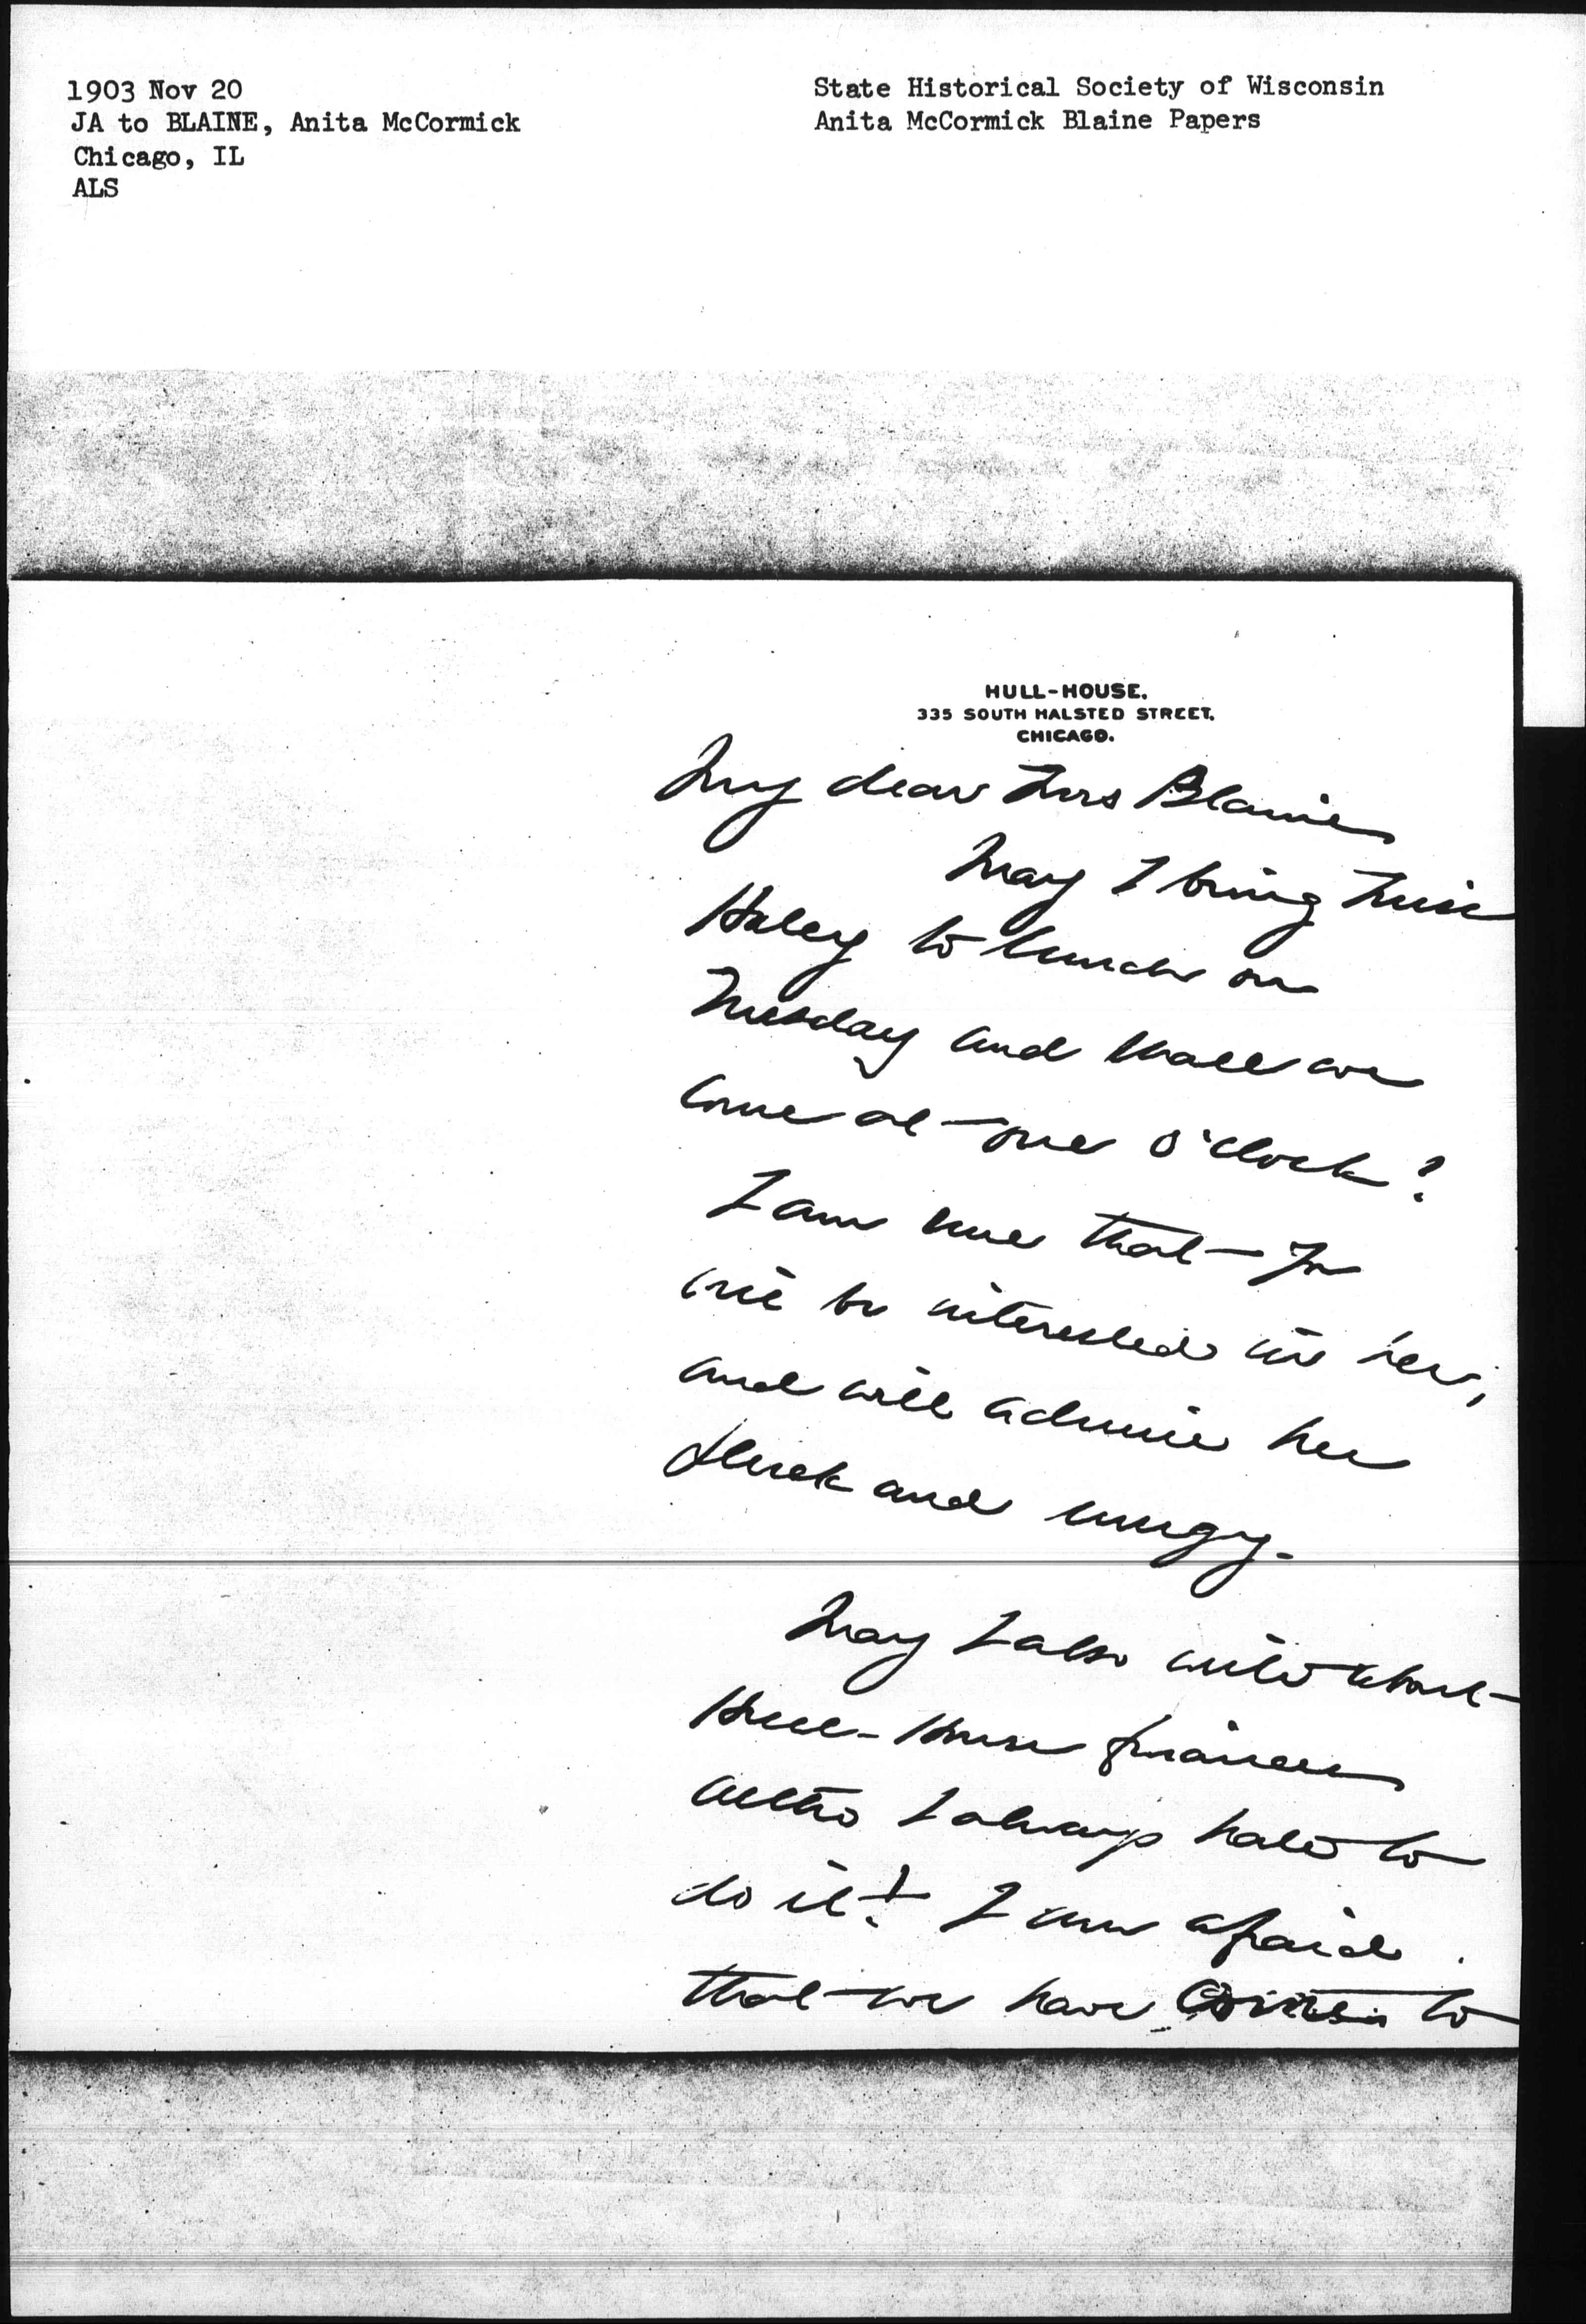 1903 Nov 20
JA to BLAINE, Anita McCormick
Chicago, IL
ALS
State Historical Society of Wisconsin
Anita McCormick Blaine Papers
HULL-HOUSE.
335 SOUTH HALSTED STREET.
CHICAGO.
My dear Mrs Blaine
May I bring Miss
Haley to lunch on
Tuesday and shall we
come at one o'clock?
I am sure that you
will be interested in her,
and will admire her
pluck and energy.
May I also write about
Hull-House finances
altho I always hate to
do it! I am afraid
that we have to